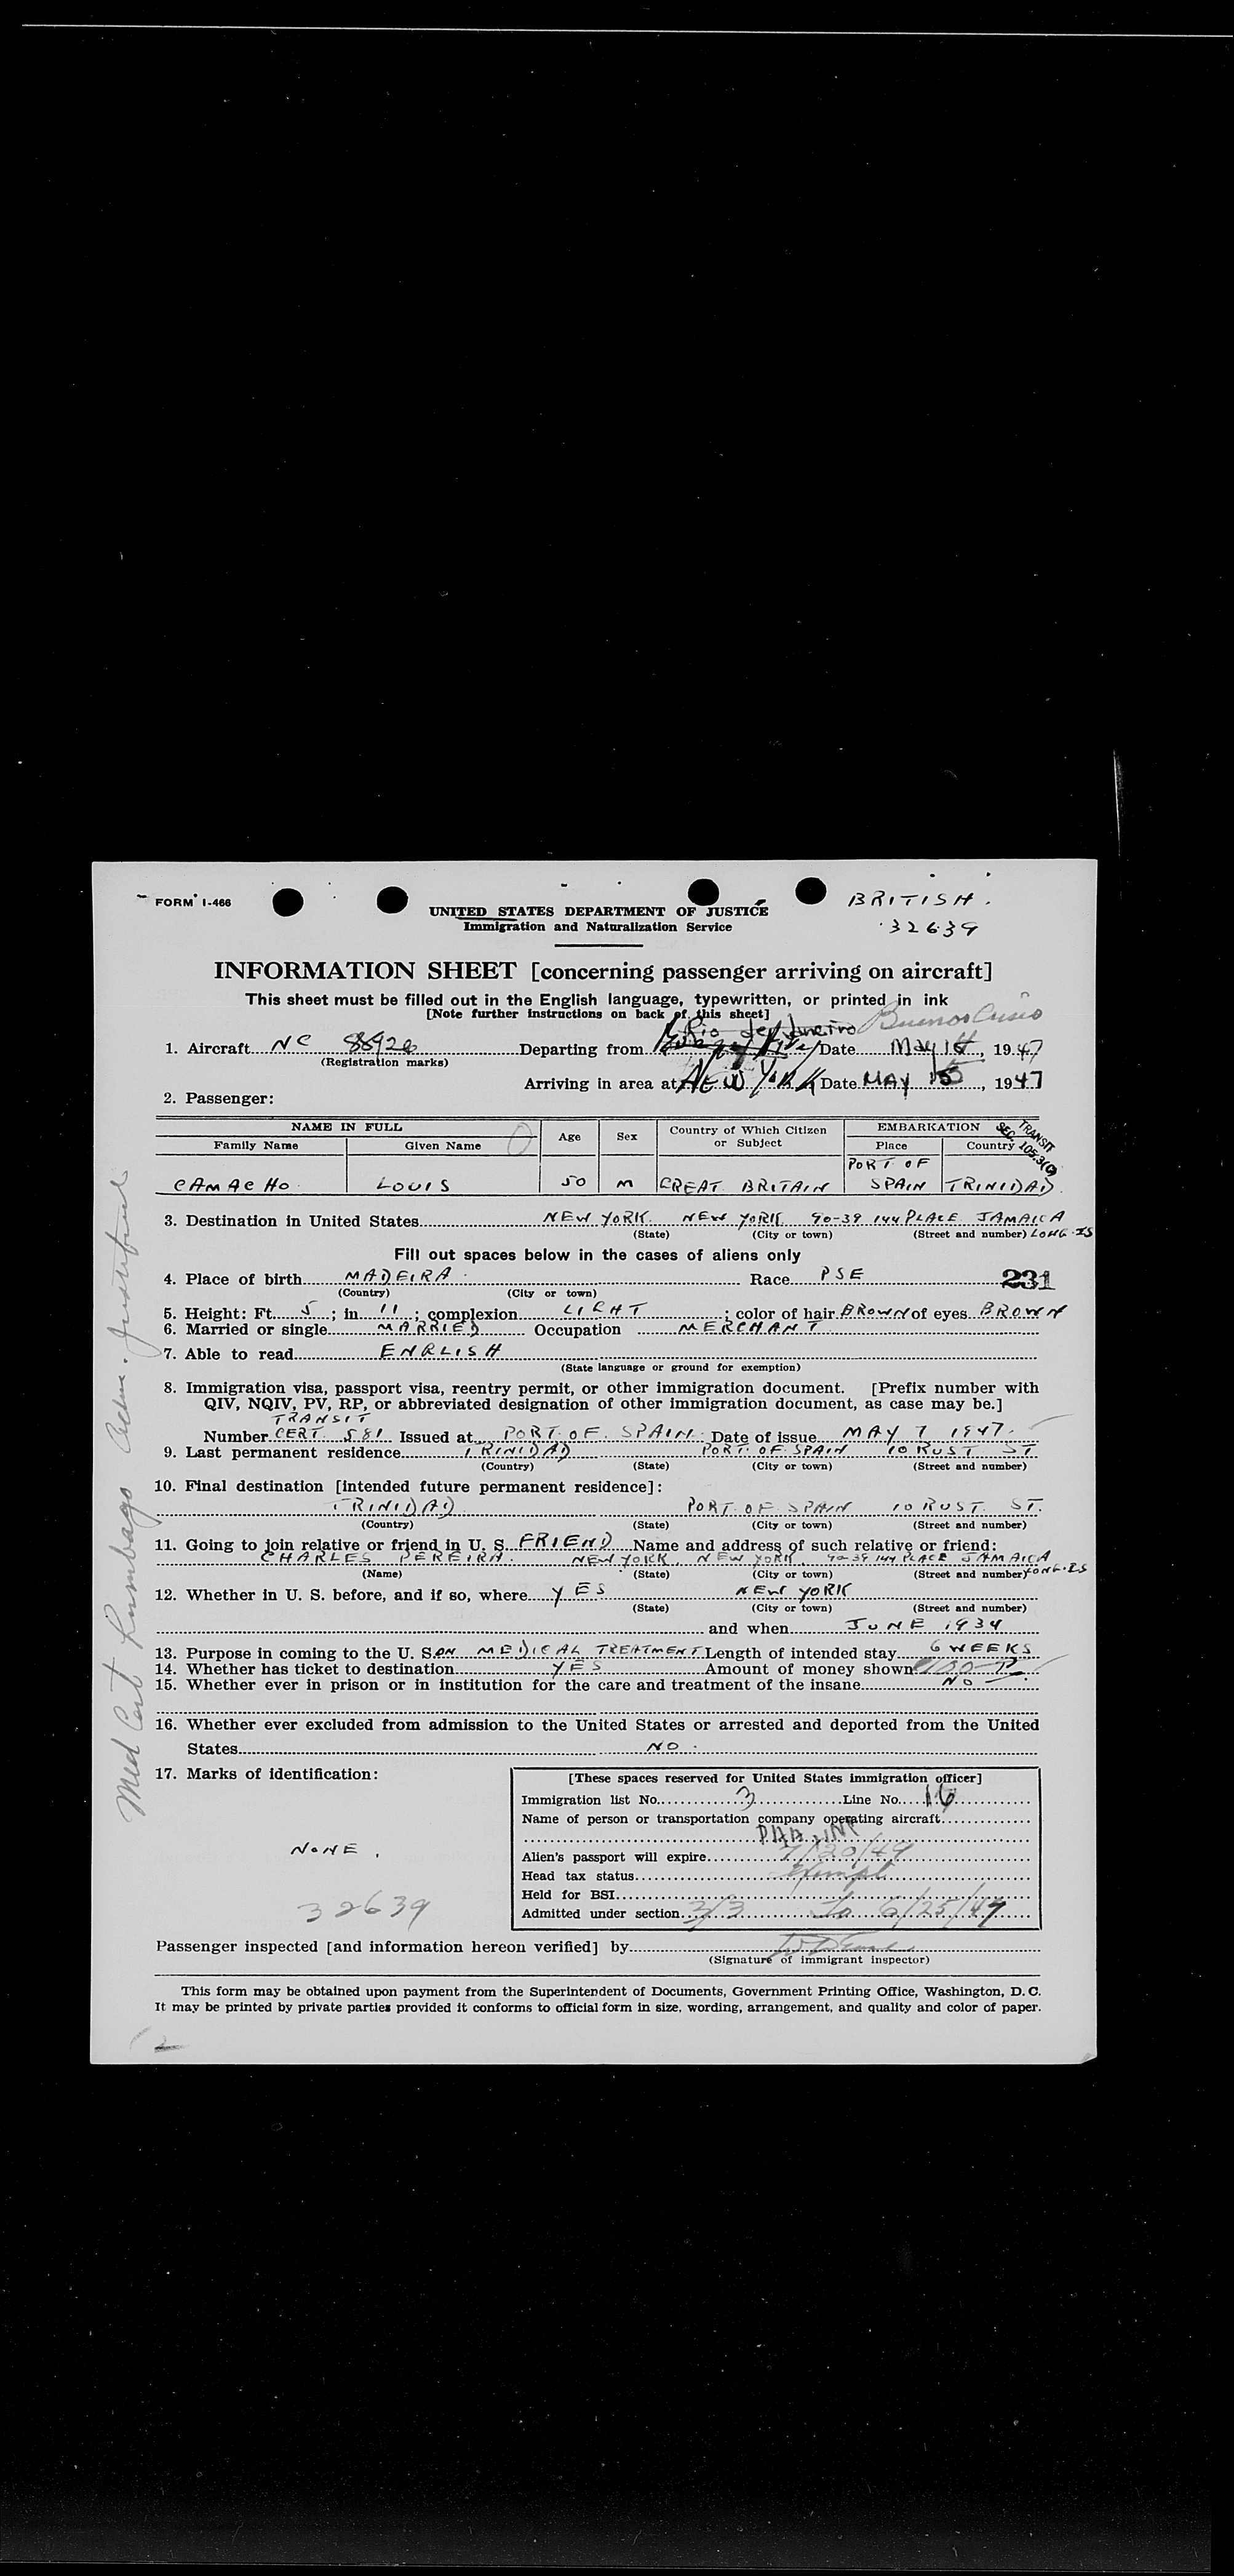 FORM I-466
BRITISH.
32639
UNITED STATES DEPARTMENT OF JUSTICE
Immigration and Naturalization Service
INFORMATION SHEET [concerning passenger arriving on aircraft]
This sheet must be filled out in the English language, typewritten, or printed in ink
[Note further instructions on back of this sheet]
Rio de Janeiro Buenos Aires
1. Aircraft NC 88926 Departing from Date May 14, 1947
(Registration marks)
Arriving in area at NEW YORK Date MAY 15, 1947
2. Passenger:
NAME IN FULL Age Sex Country of Which Citizen or Subject EMBARKATION
Family Name Given Name Place Country
TRANSIT
SEC. 105.3(C)
CAMACHO LOUIS 50 M GREAT BRITAIN PORT OF SPAIN TRINIDAD
3. Destination in United States NEW YORK NEW YORK 90-39 144 PLACE JAMAICA
(State) (City or town) (Street and number) LONG-IS
Fill out spaces below in the cases of aliens only
4. Place of birth MADEIRA Race PSE 231
(Country) (City or town)
5. Height: Ft. 5; in 11; complexion LIGHT; color of hair BROWN of eyes BROWN
6. Married or single MARRIED Occupation MERCHANT
7. Able to read ENGLISH
(State language or ground for exemption)
8. Immigration visa, passport visa, reentry permit, or other immigration document. [Prefix number with
QIV, NQIV, PV, RP, or abbreviated designation of other immigration document, as case may be.]
TRANSIT
Number CERT. 581 Issued at PORT OF SPAIN Date of issue MAY 7 1947.
9. Last permanent residence TRINIDAD PORT OF SPAIN 10 RUST ST
(Country) (State) (City or town) (Street and number)
10. Final destination [intended future permanent residence]:
TRINIDAD PORT OF SPAIN 10 RUST. ST.
(Country) (State) (City or town) (Street and number)
11. Going to join relative or friend in U. S. FRIEND Name and address of such relative or friend:
CHARLES PEREIRA. NEW YORK, NEW YORK, 90-39 144 PLACE JAMAICA
(Name) (State) (City or town) (Street and number) LONG-IS
12. Whether in U. S. before, and if so, where YES NEW YORK
(State) (City or town) (Street and number)
and when JUNE 1934
13. Purpose in coming to the U. S. ON MEDICAL TREATMENT Length of intended stay 6 WEEKS
14. Whether has ticket to destination YES Amount of money shown
15. Whether ever in prison or in institution for the care and treatment of the insane NO
16. Whether ever excluded from admission to the United States or arrested and deported from the United
States NO.
17. Marks of identification:
NONE.
32639
[These spaces reserved for United States immigration officer]
Immigration list No. 3 Line No. 16
Name of person or transportation company operating aircraft
PAA INC
Alien's passport will expire 7/20/49
Head tax status Exempt
Held for BSI
Admitted under section 3/3 to 6/25/47
Passenger inspected [and information hereon verified] by
(Signature of immigrant inspector)
This form may be obtained upon payment from the Superintendent of Documents, Government Printing Office, Washington, D. C.
It may be printed by private parties provided it conforms to official form in size, wording, arrangement, and quality and color of paper.
Med Cert Lumbago